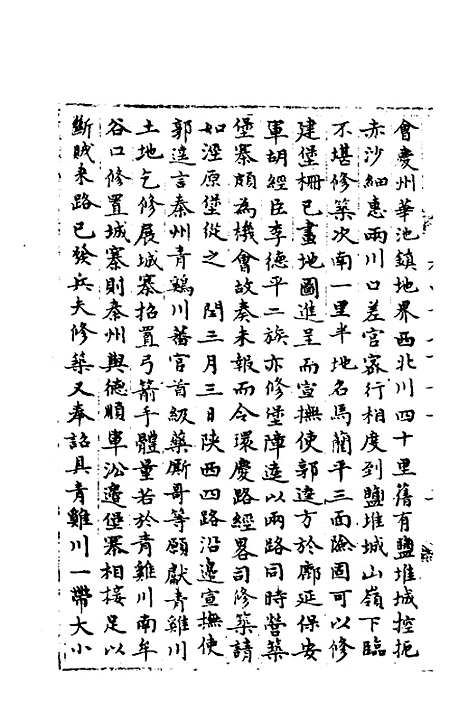 會慶州華池鎮地界西北川四十里舊有鹽堆城控扼
赤沙細惠兩川口差官寀行相度到鹽堆城山嶺下臨
不堪修築次南一里半地名馬蘭平三面險固可以修
建堡柵已畫地圖進呈而宣撫使郭逵方於鄜延保安
軍胡經臣李德平二族亦修堡障逵以兩路同時營築
堡寨頗為機會故奏未報而令環慶路經畧司修築請
如涇原堡從之　閏三月三日陝西四路沿邊宣撫使
郭逵言秦州青鷄川蕃官首級藥厮哥等願獻青雞川
土地乞修展城寨招置弓箭手體量若於青雞川南牟
谷口修置城寨則秦州與德順軍沿邉堡寨相接足以
斷賊來路已發兵夫修築又奉詔具青雞川一帶大小